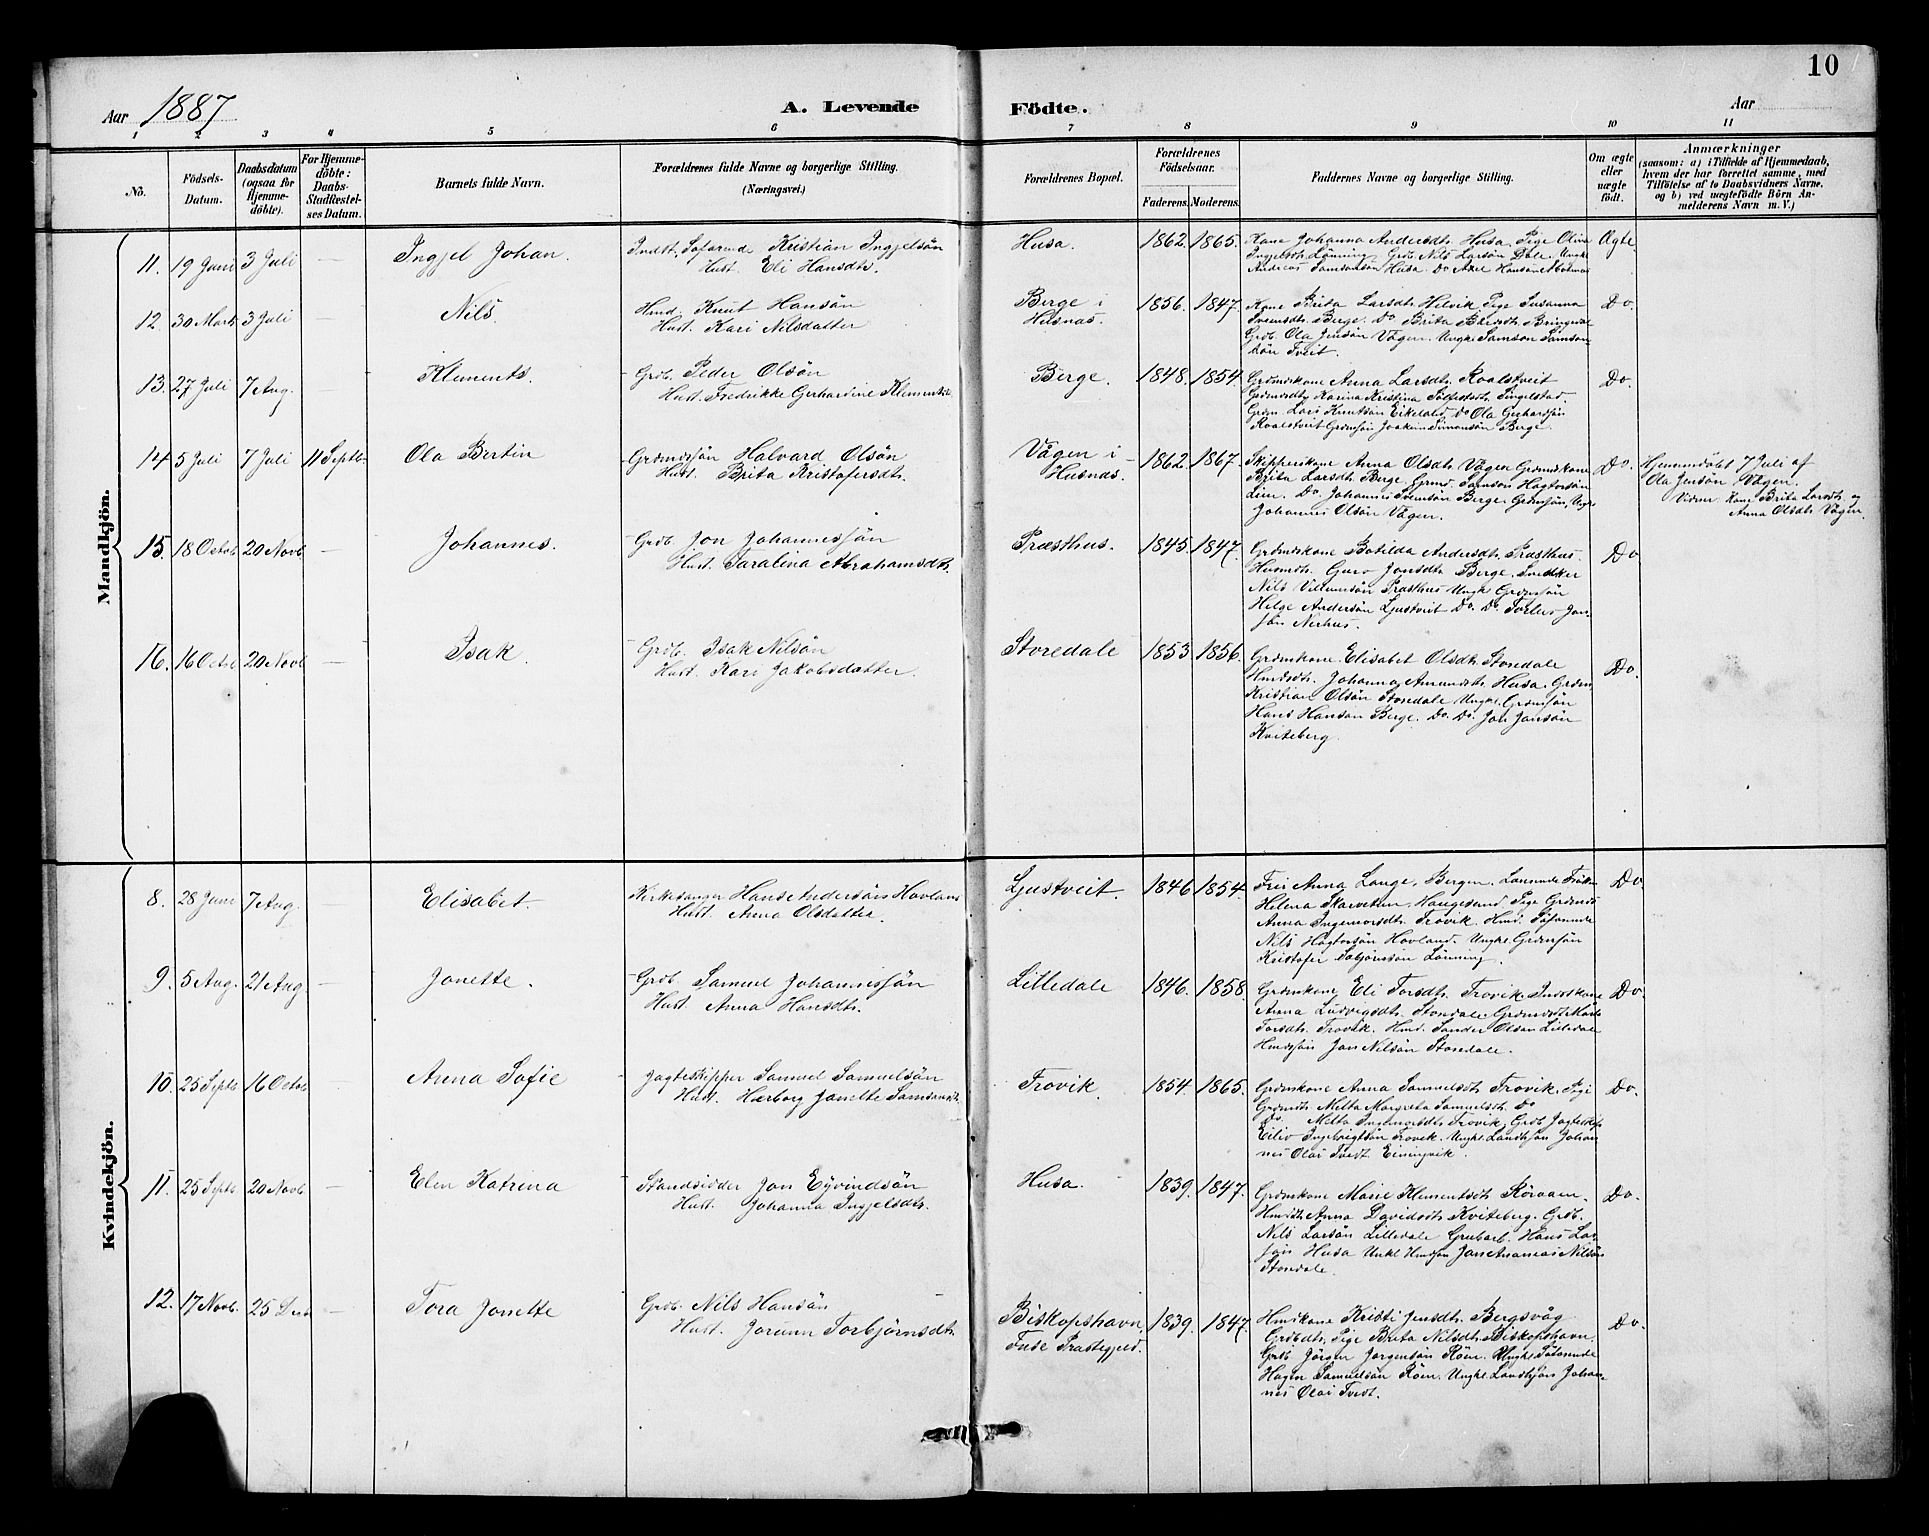 10
Aar 1887
A. Levende Födte.
Aar
1 2 3 4 5 6 7 8 9 10 11
No.
Födsels-Datum.
Daabsdatum (ogsaa for Hjemmedöbte).
For Hjemmedöbte: Daabs-Stadfæstelses Datum.
Barnets fulde Navn.
Forældrenes fulde Navne og borgerlige Stilling.
(Næringsvei.)
Forældrenes Bopæl.
Forældrenes Födselsaar.
Faderens. Moderens.
Faddernes Navne og borgerlige Stilling.
Om ægte eller uægte födt.
Anmærkninger
(saasom: a) i Tilfælde af Hjemmedaab, hvem der har forrettet samme, med Tilföielse af to Daabsvidners Navne, og b) ved uægtefödte Börn Anmelderens Navn m. V.)
Mandkjön.
11. 19 Juni 3 Juli — Ingjel Johan. Indst. Söfarende Kristian Ingjelsön
Hust. Eli Hansdtr.
Husa. 1862. 1865. Kone Johanna Andersdtr. Husa. Pige Olina
Ingelsdtr. Lönning. Grdb. Nils Larsön Dale. Ungk.
Andreas Samsonsön Husa. Do Axel Hansön
Ægte
12. 30 Marts 3 Juli — Nils. Hmd. Knut Hansön
Hust. Kari Nilsdatter
Berge i
Husnas.
1856. 1847. Kone Brita Larsdtr. Helvik Pige Susanna
Svensdtr. Berge. Do Brita
Grdb. Ola Jensön Vågen. Ungk. Samson Samson-
sön Tveit.
Do.
13. 27 Juli 7 Aug. — Klements. Grdb. Peder Olsön
Hust. Fredrikke Gerhardine Klementsd.
Berge. 1848. 1854. Grdmdskone Anna Larsdtr. Roalstveit
Karina Kristina
Lars Knutsön Eikeland Do Ola Gerhardsön
Roalstveit Grdmsön Joakim Simonsön Berge.
Do.
14. 5 Juli 7 Juli 11 Septb. Ola Bertin Grdmdssön Halvard Olsön
Hust. Brita Kristofersdtr.
Vågen i
Husnas.
1862. 1867. Skipperskone Anna Olsdtr. Vågen Grdmdskone
Brita Larsdtr. Berge. Grmd. Samson Hagtorsön
Lien. Do. Johannes Svensön Berge. Grdmsön, Ungk.
Johannes Olsön Vågen.
Do. Hjemmedöbt 7 Juli af
Ola Jensön Vågen.
Vidner Kone Brita Larsdtr. og
Anna Olsdtr. Vågen.
15. 18 Octob. 20 Novb. — Johannes. Grdb. Jon Johannessön
Hust. Taralina Abrahamsdtr.
Præsthus. 1845. 1847. Grdmdskone Botilda Andersdtr. Præsthus.
Guro Jonsdtr. Berge. Snedker
Nils Villumsön Præsthus Ungk. Grdmsön
Helge Andersön Ljustveit Do. Do. Torles Jon-
sön Nerhus.
Do
16. 16 Octb. 20 Novb — Isak. Grdb. Isak Nilsön
Hust. Kari Jakobsdatter.
Storedale 1853. 1856. Grdmskone Elisabet Olsdtr. Storedale
Hmdsdtr. Johanna Amundsdtr. Husa. Grdm.
Kristian Olsön Storedale Ungk. Grdmsön
Hans Hansön Berge. Do. Do. Jon Jonsön
Kviteberg.
Do.
Kvindekjön.
8. 28 Juni 7 Aug. — Elisabet. Kirkesanger Hans Andersön Hovland
Hust. Anna Olsdatter
Ljustveit. 1846 1854. Frü Anna Lange, Bergen. Lærerinde Fröken
Helena Haugesund. Pige Grdmds
Anna Ingemorsdtr. Trovik. Hmd. Söfarende
Nils Hagtorsön Hovland. Ungk. Grdmsön
Kristofer Lönning.
Do.
9. 5 Aug. 21 Aug. — Jonette. Grdb. Samuel Johannessön
Hust. Anna Hansdtr.
Lilledale 1846. 1858. Grdmskone Eli Torsdtr. Trovik. Indstkone
Anna Ludvigsdtr. Storedale. Grdmdsdtr.
Torsdtr. Trovik. Hmd. Sander Olsön Lilledale
Hmdssön Jon Nilsön Storedale.
Do.
10. 25 Septb 16 Octob — Anna Sofie Jagteskipper Samuel Samuelsön
Hust. Hærborg Janette Samsonsdtr.
Trovik. 1854. 1865. Grdmskone Anna Samuelsdtr. Trovik. Pige
Grdmdtr. Metta Margreta Samuelsdtr. Do
Do. Metta Ingemorsdtr. Trovik, Grdb. Jagteskip.
Eiliv Ingebrigtsön Trovik. Ungk. Landhsön Johan-
nes Olai Tvedt Einingvik.
Do.
11. 25 Septb. 20 Novb. — Elen Katrina Strandsidder Jon Eyvindsön
Hust. Johanna Ingjelsdtr.
Husa. 1839. 1847. Grdmskone Marie Klementsdtr.
Hmdsdtr. Anna Davidsdtr. Kviteberg. Grdb.
Nils Larsön Lilledale Grubearb. Hans Lar-
sön Husa Unkl. Hmdsön Jon Ananias Nilsön
Storedale.
Do.
12. 17 Novb. 25 Decb — Tora Jonette Grdb. Nils Hansön
Hust. Jorunn Torbjörnsdtr.
Biskopshavn,
Præstegjeld.
1839. 1847. Hmskone Kristi Jensdtr. Bergsvåg
Grdbdtr. Pige Brita Nilsdtr. Biskopshavn.
Grdb. Jörgen Jörgensön Röen. Ungk. Söfarende
Hagen Samuelsön Röen. Ungk. Landhsön Johan-
nes Olai Tvedt.
Do.